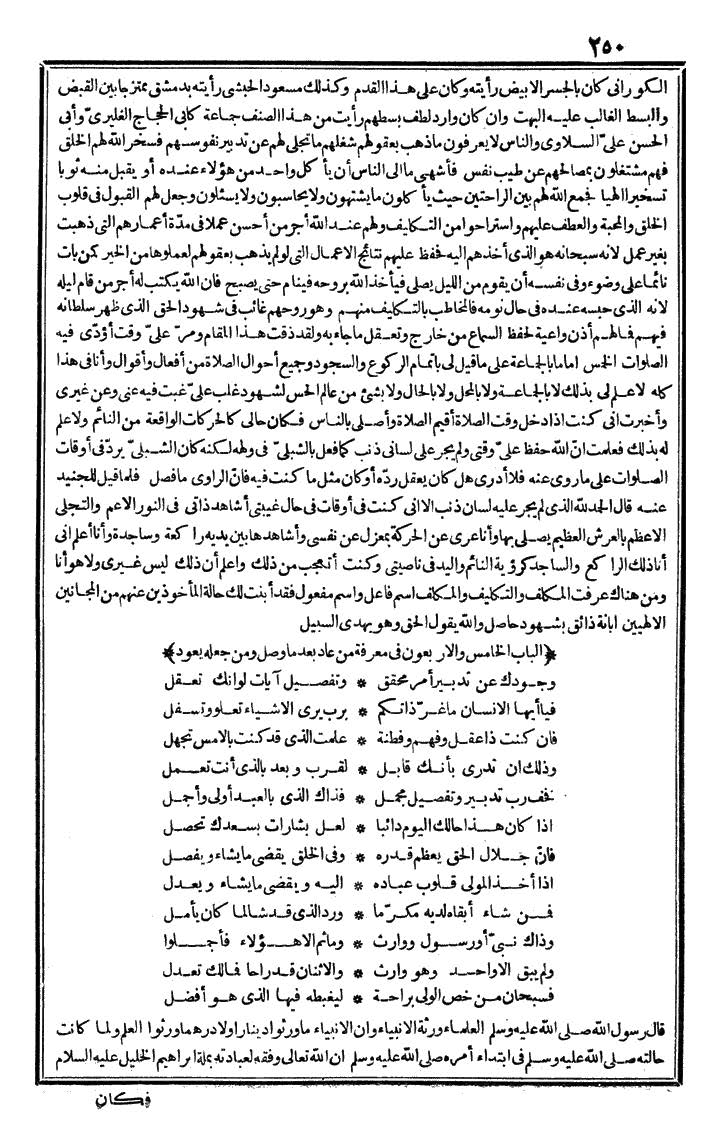 ٢٥٠
الكوراني كان بالجسر الابيض رأيته وكان على هذا القدم وكذلك مسعود الحبشي رأيته بدمشق ممتزجا بين القبض
والبسط الغالب عليه البهت وان كان وارد لطف بسطهم رأيت من هذا الصنف جماعة كابى الحجاج الغليرى وأبى
الحسن علىّ السلاوى والناس لا يعرفون ما ذهب بعقولهم شغلهم ما تجلى لهم عن تدبير نفوسهم فسخر الله لهم الخلق
فهم مشتغلون بمصالحهم عن طيب نفس فأشهى ما الى الناس أن يأكل واحد من هؤلاء عنده أو يقبل منه ثوبا
تسخيرا الهيا فجمع الله لهم بين الراحتين حيث يأكلون ما يشتهون ولا يحاسبون ولا يسئلون وجعل لهم القبول فى قلوب
الخلق والمحبة والعطف عليهم واستراحوا من التكاليف ولهم عند الله أجر من أحسن عملا فى مدّة أعمارهم التى ذهبت
بغير عمل لانه سبحانه هو الذى أخذهم اليه فحفظ عليهم نتائج الاعمال التى لو لم يذهب بعقولهم لعملوها من الخير كمن بات
نائما على وضوء وفى نفسه أن يقوم من الليل يصلى فيأخذ الله بروحه فينام حتى يصبح فان الله يكتب له أجر من قام ليله
لانه الذى حبسه عنده فى حال نومه فالمخاطب بالتكاليف منهم وهو روحهم غائب فى شهود الحق الذى ظهر سلطانه
فيهم فالهم أذن واعية لحفظ السماع من خارج وتعقل ما جاء به ولقد ذقت هذا المقام ومرّ علىّ وقت أؤدّى فيه
الصلوات الخمس اماما بالجماعة على ما قيل لى باتمام الركوع والسجود وجميع أحوال الصلاة من أفعال وأقوال وأنا فى هذا
كله لا علم لى بذلك لا بالجماعة ولا بالمحل ولا بالحال ولا بشئ من عالم الحس لشهود غلب علىّ غبت فيه عنى وعن غيرى
وأخبرت انى كنت اذا دخل وقت الصلاة أقيم الصلاة وأصلى بالناس فكان حالى كالحركات الواقعة من النائم ولا علم
له بذلك فعلمت انّ الله حفظ علىّ وقتى ولم يجر على لسانى ذنب كما فعل بالشبلىّ فى ولهه لكنه كان الشبلىّ يردّ فى أوقات
الصلوات على ما روى عنه فلا أدرى هل كان يعقل ردّه أو كان مثل ما كنت فيه فانّ الراوى ما فصل فلما قيل للجنيد
عنه قال الحمد لله الذى لم يجر عليه لسان ذنب الا انى كنت فى أوقات فى حال غيبتى أشاهد ذاتى فى النور الاعم والتجلى
الاعظم بالعرش العظيم يصلى بها وأنا عرى عن الحركة بمعزل عن نفسى وأشاهدها بين يديه راكعة وساجدة وأنا أعلم انى
أنا ذلك الراكع والساجد كرؤية النائم واليد فى ناصيتى وكنت أتعجب من ذلك واعلم أن ذلك ليس غيرى ولا هو أنا
ومن هناك عرفت المكلف والتكليف والمكلف اسم فاعل واسم مفعول فقد أبنت لك حالة المأخوذين عنهم من المجانين
الالهيين ابانة ذائق بشهود حاصل والله يقول الحق وهو يهدى السبيل
﴿الباب الخامس والاربعون فى معرفة من عاد بعد ما وصل ومن جعله يعود﴾
وجودك عن تدبير أمر محقق * وتفصيل آيات لو انك تعقل
فيا أيها الانسان ما غرّ ذاتكم * برب يرى الاشياء تعلو وتسفل
فان كنت ذا عقل وفهم وفطنة * علمت الذى قد كنت بالامس تجهل
وذلك ان تدرى بأنك قابل * لقرب وبعد بالذى أنت تعمل
فخف رب تدبير وتفصيل مجمل * فذاك الذى بالعبد أولى وأجمل
اذا كان هذا حالك اليوم دائبا * لعل بشارات بسعدك تحصل
فانّ جلال الحق يعظم قدره * وفى الخلق يقضى ما يشاء ويفصل
اذا أخذ المولى قلوب عباده * اليه ويقضى ما يشاء ويعدل
فمن شاء أبقاه لديه مكرّما * وردّ الذى قد شا لما كان يأمل
وذاك نبىّ أو رسول ووارث * وما ثم الا هؤلاء فأجملوا
ولم يبق الا واحد وهو وارث * والاثنان قد راحا فمالك تعدل
فسبحان من خص الولى براحة * ليغبطه فيها الذى هو أفضل
قال رسول الله صلى الله عليه وسلم العلماء ورثة الانبياء وان الانبياء ما ورثوا دينارا ولا درهما ورثوا العلم ولما كانت
حالته صلى الله عليه وسلم فى ابتداء أمره صلى الله عليه وسلم ان الله تعالى وفقه لعبادته بملة ابراهيم الخليل عليه السلام
فكان